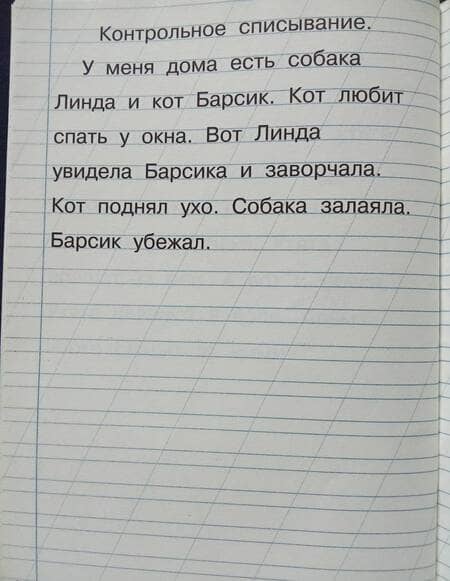 Контрольное списывание.
У меня дома есть собака
Линда и кот Барсик. Кот любит
спать у окна. Вот Линда
увидела Барсика и заворчала.
Кот поднял ухо. Собака залаяла.
Барсик убежал.